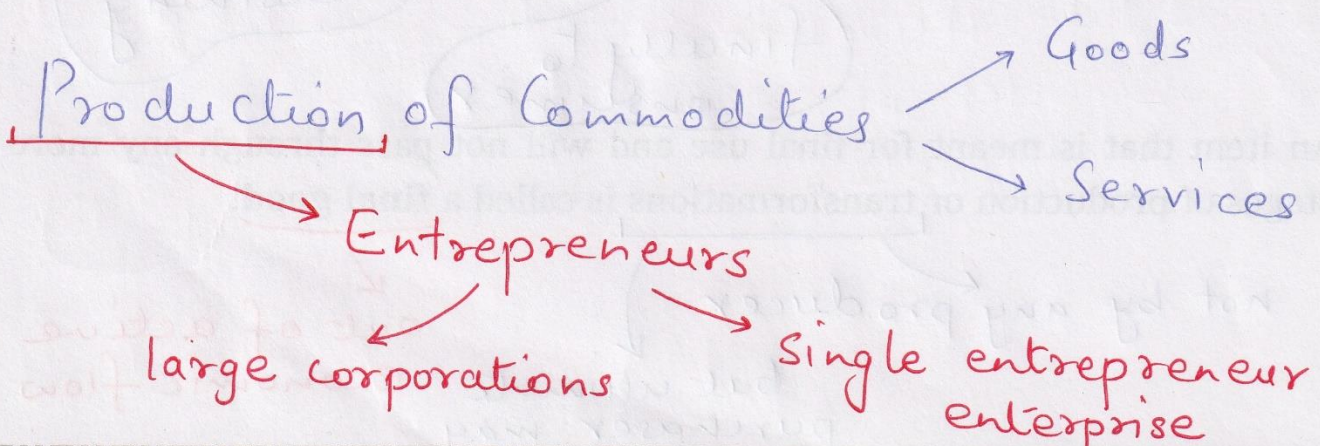 Goods
Production of Commodities
Services
Entrepreneurs
large corporations
single entrepreneur
enterprise